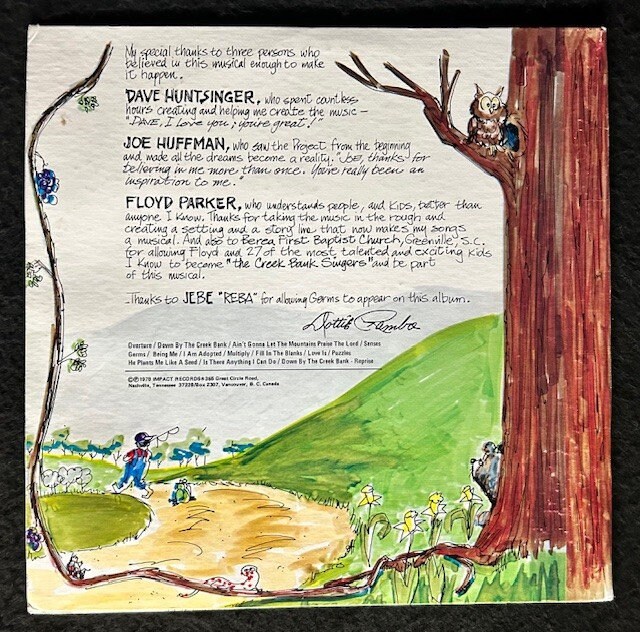 My special thanks to three persons who
believed in this musical enough to make
it happen.
DAVE HUNTSINGER, who spent countless
hours creating and helping me create the music –
"DAVE, I love you; you're great!"
JOE HUFFMAN, who saw the Project from the beginning
and made all the dreams become a reality. "JOE, thanks for
believing in me more than once. You've really been an
inspiration to me."
FLOYD PARKER, who understands people, and kids, better than
anyone I know. Thanks for taking the music in the rough and
creating a setting and a story line that now makes my songs
a musical. And also to Berea First Baptist Church, Greenville, S.C.
for allowing Floyd and 27 of the most talented and exciting kids
I know to become "the Creek Bank Singers" and be part
of this musical.
Thanks to JEBE "REBA" for allowing Germs to appear on this album.
Dottie Rambo
Overture / Down By The Creek Bank / Ain't Gonna Let The Mountains Praise The Lord / Senses
Germs / Being Me / I Am Adopted / Multiply / Fill In The Blanks / Love Is / Puzzles
He Plants Me Like A Seed / Is There Anything I Can Do / Down By The Creek Bank - Reprise
©℗1978 IMPACT RECORDS® 365 Great Circle Road,
Nashville, Tennessee 37228/Box 2307, Vancouver, B. C. Canada